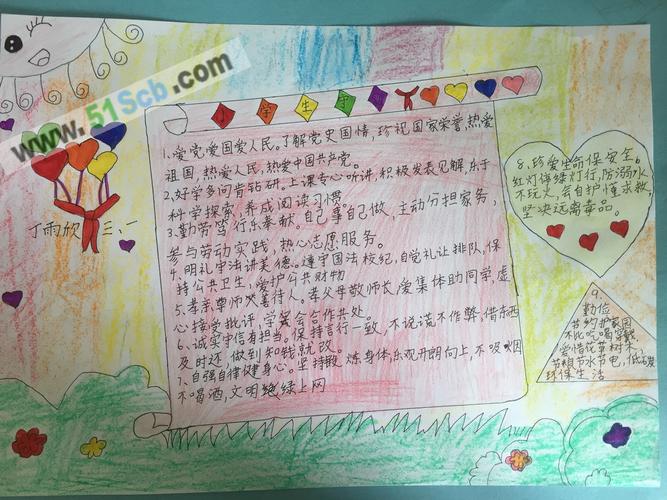 www.51Scb.com
小学生守
丁雨欣 三、一
1、爱党爱国爱人民。了解党史国情,珍视国家荣誉,热爱
祖国,热爱人民,热爱中国共产党。
2、好学多问肯钻研。上课专心听讲,积极发表见解,乐于
科学探索,养成阅读习惯。
3、勤劳笃行乐奉献。自己事自己做,主动分担家务,
参与劳动实践,热心志愿服务。
4、明礼守法讲美德。遵守国法校纪,自觉礼让排队,保
持公共卫生,爱护公共财物
5、孝亲尊师善待人。孝父母敬师长,爱集体助同学,虚
心接受批评,学会合作共处。
6、诚实守信有担当。保持言行一致,不说谎不作弊,借东西
及时还,做到知错就改。
7、自强自律健身心。坚持锻炼身体,乐观开朗向上,不吸烟
不喝酒,文明绝绿上网
8、珍爱生命保安全。
红灯停绿灯行,防溺水
不玩火,会自护懂求救,
坚决远离毒品。
9、
勤俭
节约护家园
不比吃喝穿戴,
爱惜花草树木,
节粮节水节电,低碳
环保生活